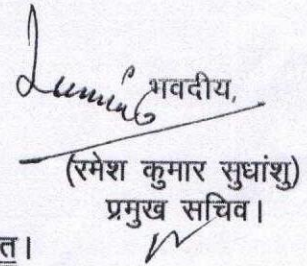 भवदीय,
(रमेश कुमार सुधांशु)
प्रमुख सचिव।
त।